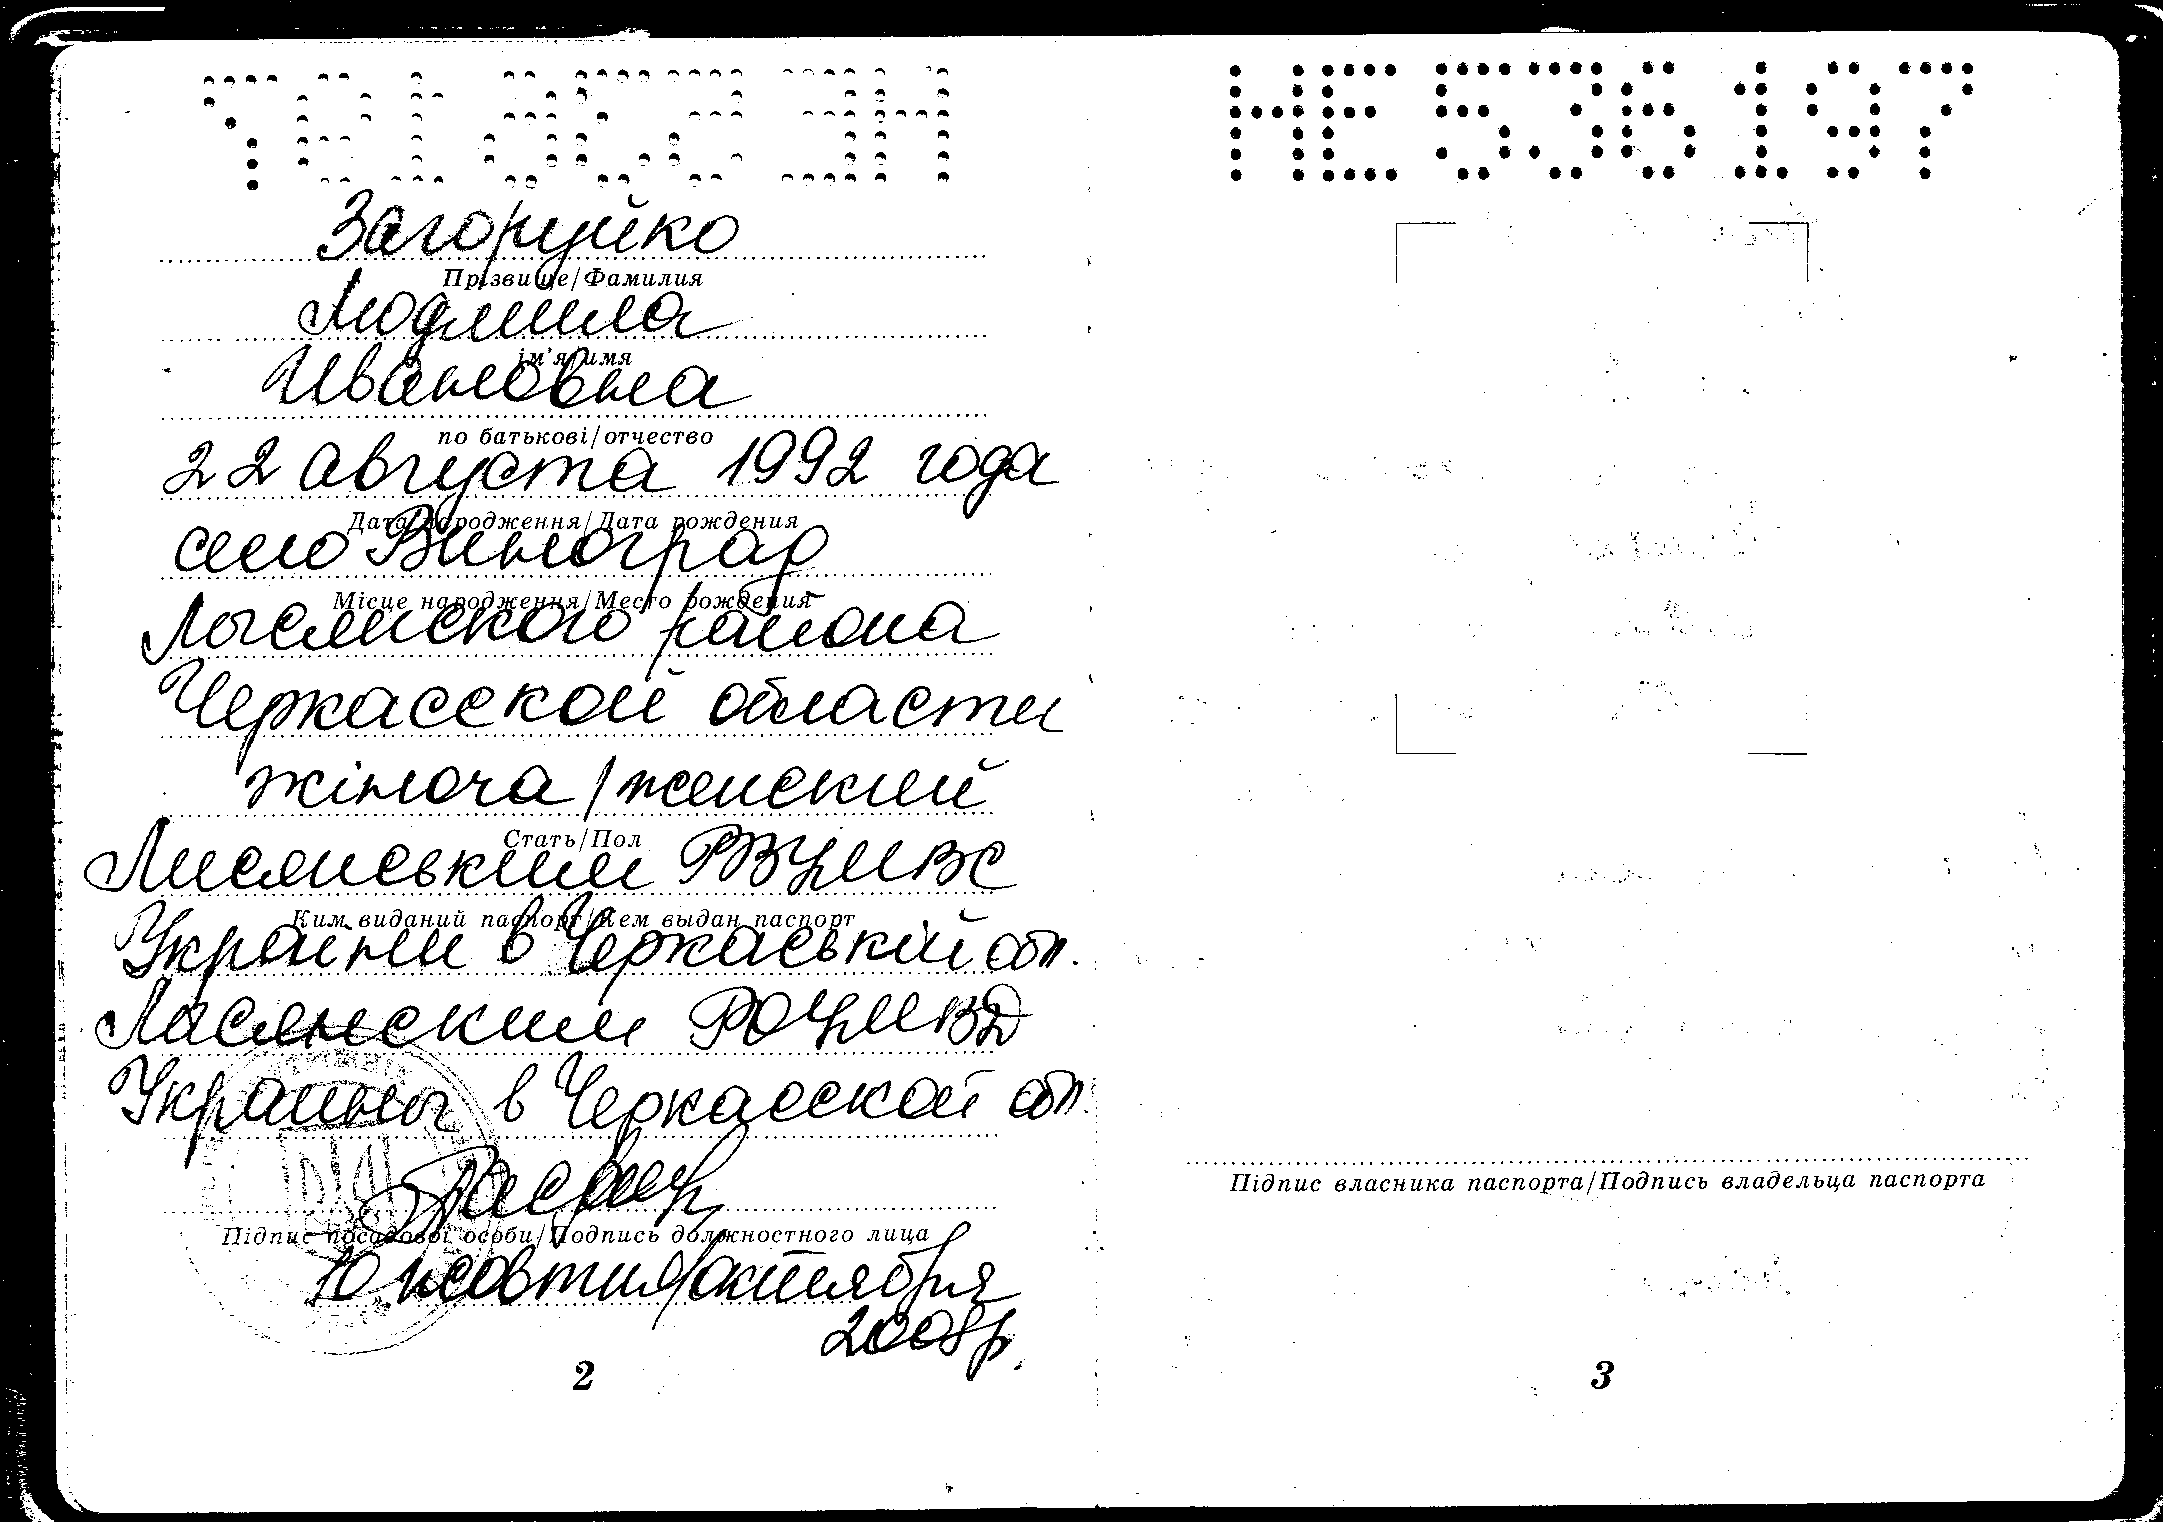 НЕ536197
Загоруйко
Прізвище/Фамилия
Людмила
ім'я/имя
Ивановна
по батькові/отчество
22 августа 1992 года
Дата народження/Дата рождения
село Виноград
Місце народження/Место рождения
Лысянского района
Черкасской области
жіноча/женский
Стать/Пол
Лисянським РВУМВС
Ким виданий паспорт/Кем выдан паспорт
України в Черкаській обл.
Лысянским РОУМВД
Украины в Черкасской обл.
Підпис посадової особи/Подпись должностного лица
10 жовтня/октября
2008р.
2
НЕ536197
Підпис власника паспорта/Подпись владельца паспорта
3